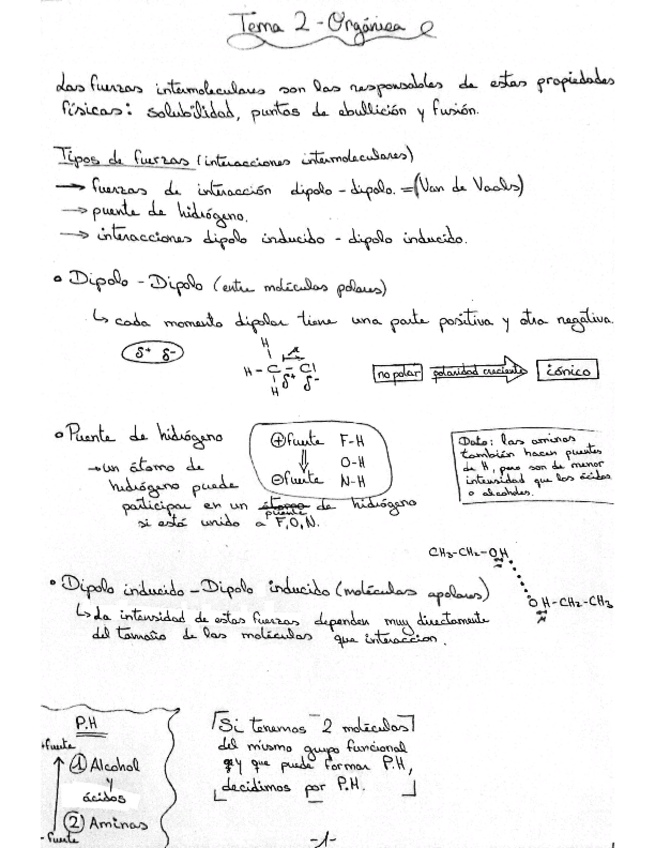 Tema 2 - Orgánica
Las fuerzas intermoleculares son las responsables de estas propiedades
físicas: solubilidad, puntos de ebullición y fusión.
Tipos de fuerzas (interacciones intermoleculares)
→ fuerzas de interacción dipolo - dipolo. = (Van de Vaals)
→ puente de hidrógeno.
→ interacciones dipolo inducido - dipolo inducido.
• Dipolo - Dipolo (entre moléculas polares)
↳ cada momento dipolar tiene una parte positiva y otra negativa.
δ+ δ-
H
H - C - Cl
δ+ δ-
H
no polar polaridad creciente iónico
• Puente de hidrógeno
→ un átomo de
hidrógeno puede
participar en un puente de hidrógeno
si está unido a F, O, N.
⊕ fuerte F-H
⇓ O-H
⊖ fuerte N-H
Dato: las aminas
también hacen puentes
de H, pero son de menor
intensidad que los ácidos
o alcoholes.
CH3-CH2-OH
OH-CH2-CH3
• Dipolo inducido - Dipolo inducido (moléculas apolares)
↳ La intensidad de estas fuerzas dependen muy directamente
del tamaño de las moléculas que interaccion.
P.H
+fuerte
① Alcohol
y
ácidos
② Aminas
- fuerte
Si tenemos 2 moléculas
del mismo grupo funcional
y que puede formar P.H,
decidimos por P.H.
-1-